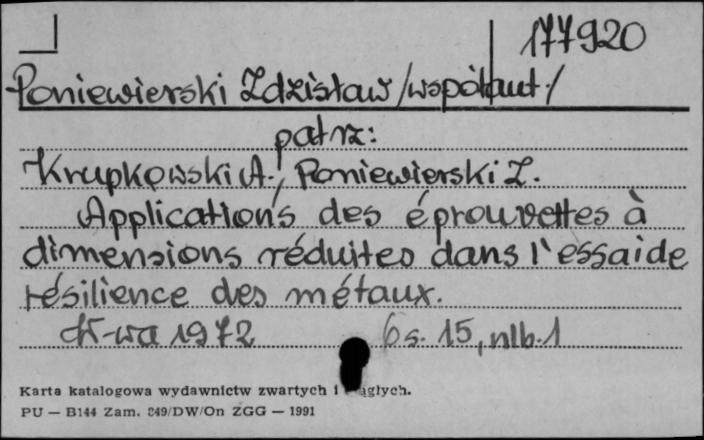 177920
Poniewierski Zdzisław /współaut./
patrz:
Krupkowski A., Poniewierski Z.
Applications des éprouvettes à
dimensions réduites dans l'essaide
résilience des métaux.
W-wa 1972 s. 15, nlb. 1
Karta katalogowa wydawnictw zwartych i ciągłych.
PU — B144 Zam. 849/DW/On ZGG — 1991